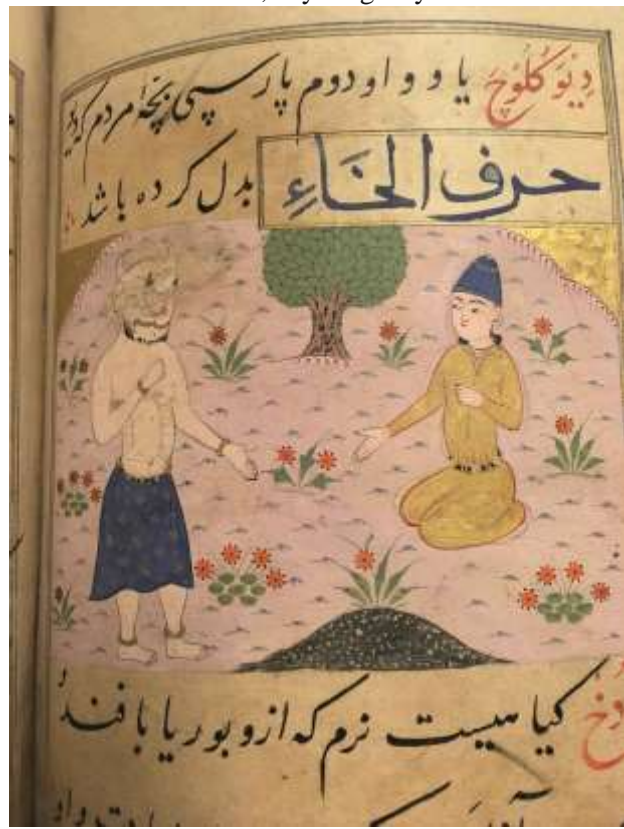 دِیْوَکُلُوچ یا و واو دوم پارسی بچهٔ مردم که دیو
حرف الخَاءِ بدل کرده باشد
دُخ کیاهیست نرم که ازو بوریا بافند